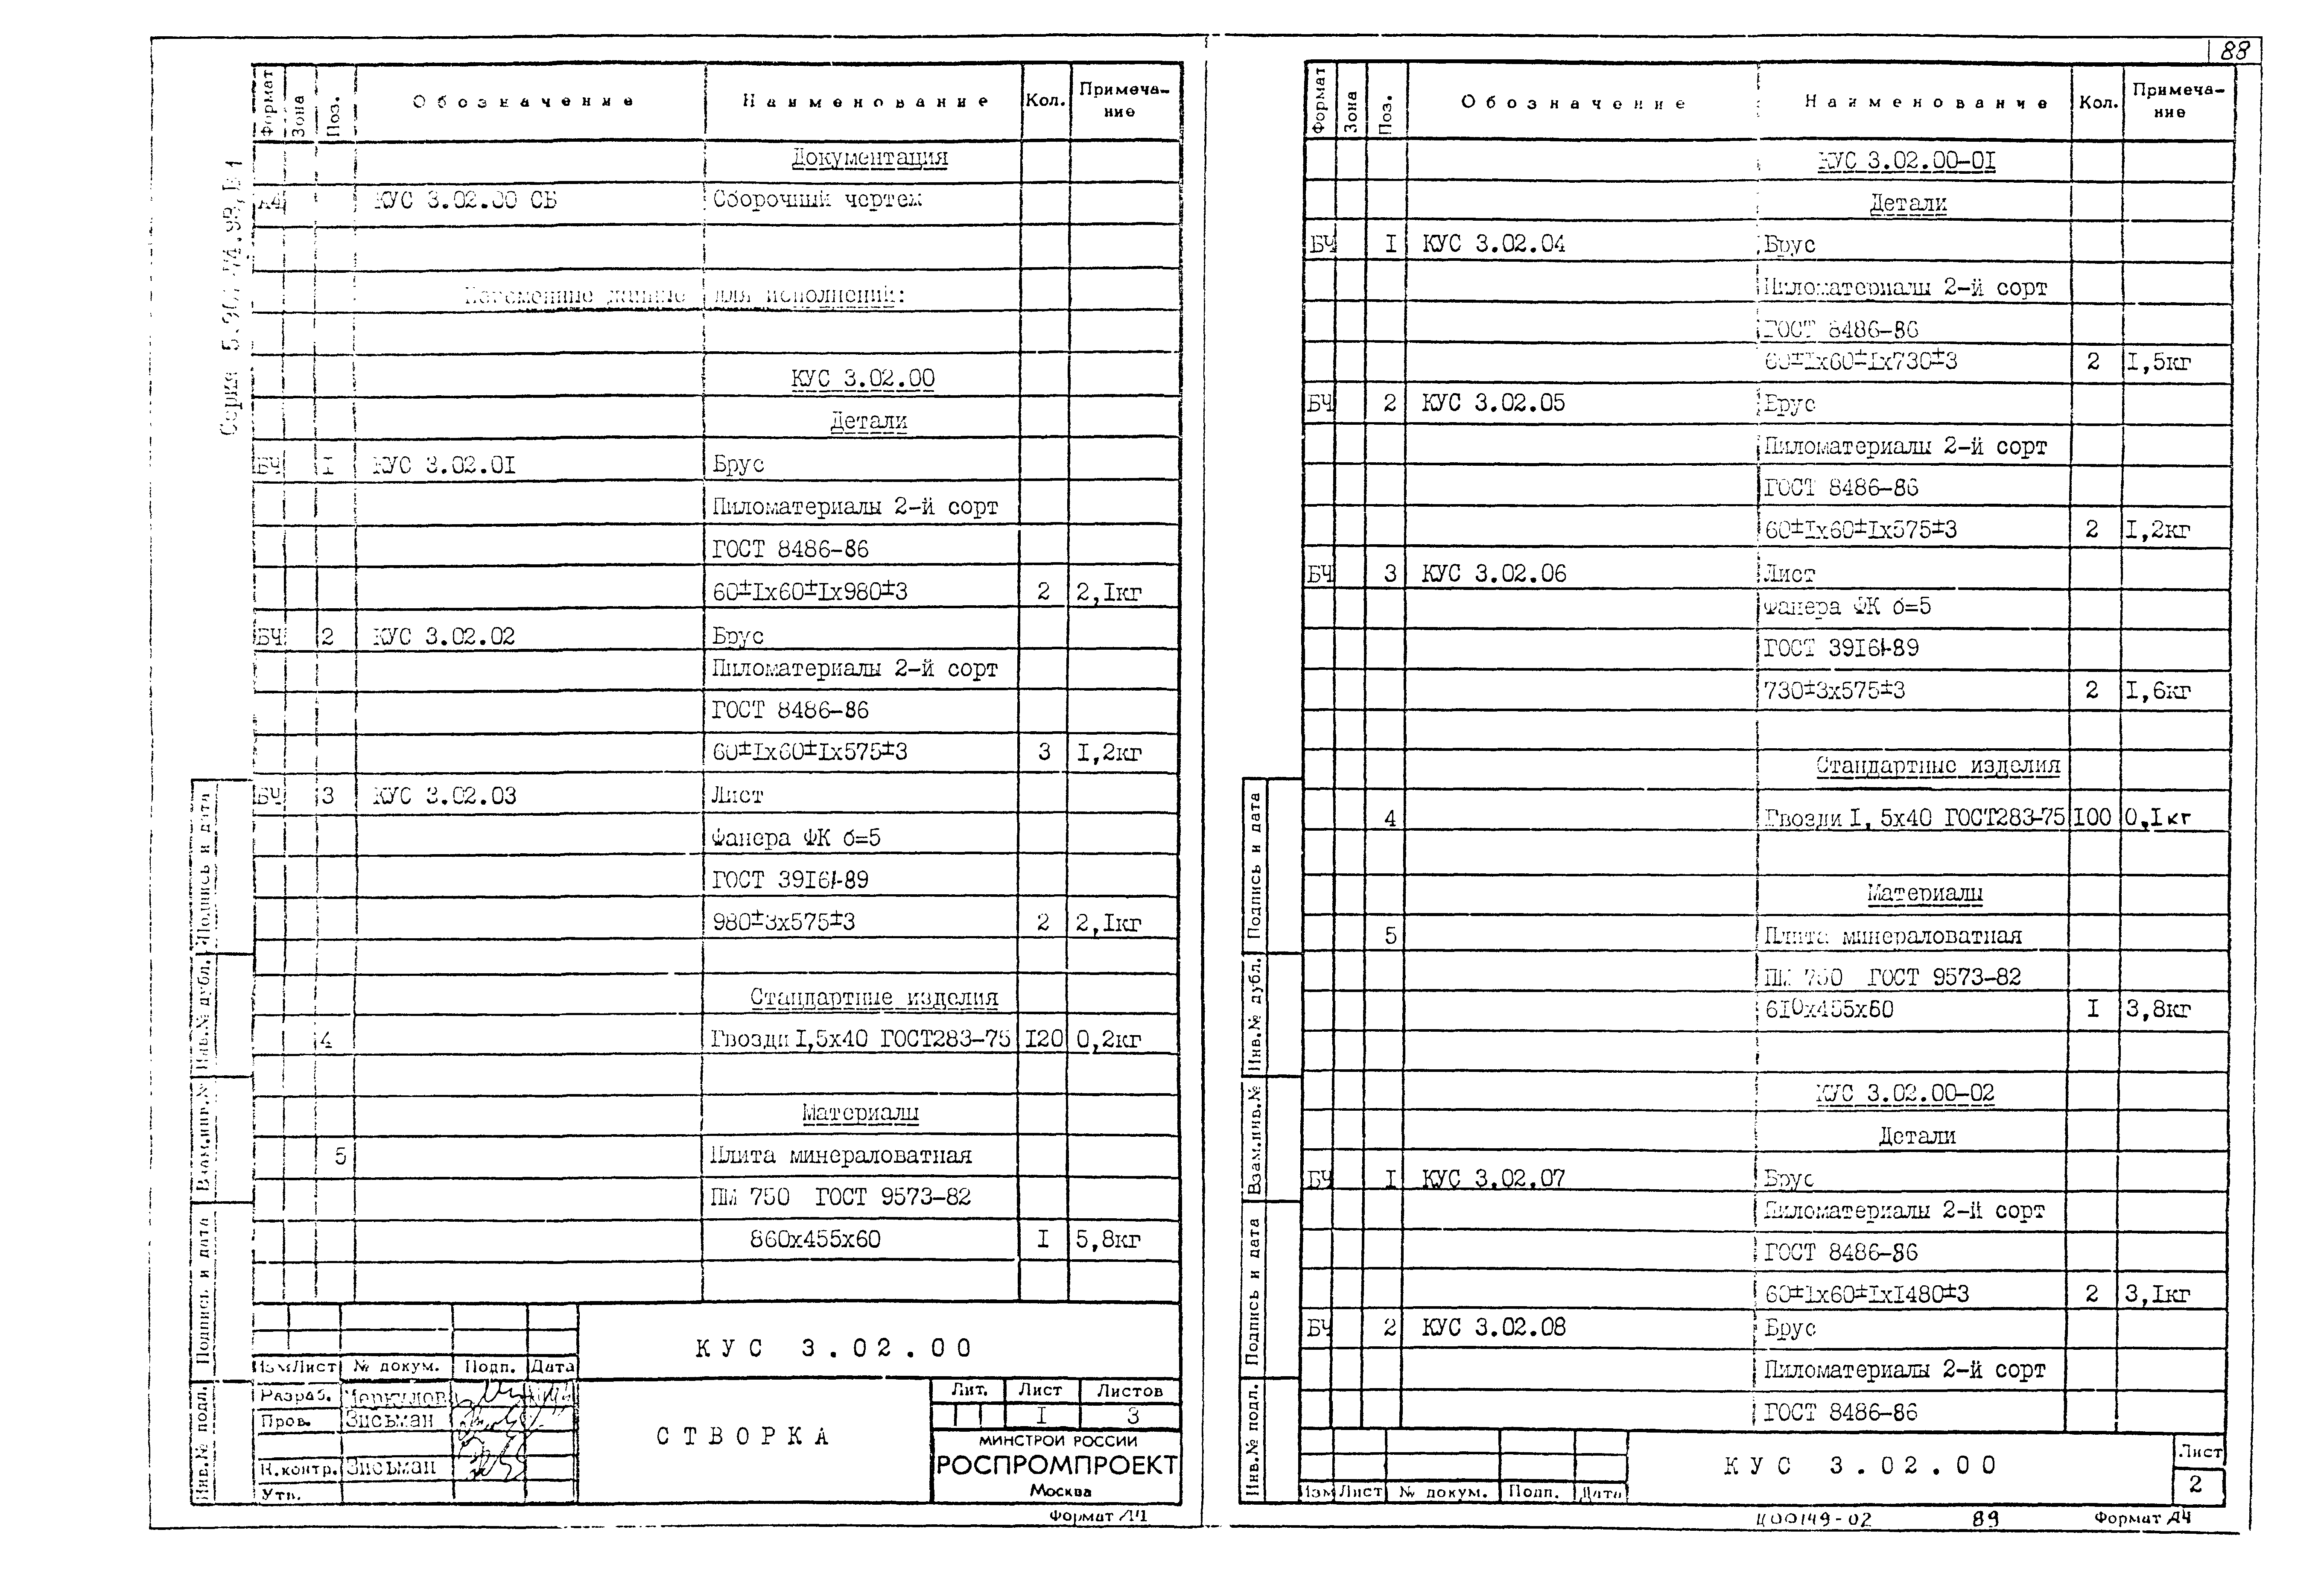 88
Серия 5.904-74.93, В 1
Формат Зона Поз. Обозначение Наименование Кол. Примеча-
ние
Документация
А4 КУС 3.02.00 СБ Сборочный чертеж
Переменные данные для исполнений:
КУС 3.02.00
Детали
БЧ 1 КУС 3.02.01 Брус
Пиломатериалы 2-й сорт
ГОСТ 8486-86
60±1х60±1х980±3 2 2,1кг
БЧ 2 КУС 3.02.02 Брус
Пиломатериалы 2-й сорт
ГОСТ 8486-86
60±1х60±1х575±3 3 1,2кг
БЧ 3 КУС 3.02.03 Лист
Фанера ФК б=5
ГОСТ 3916.1-89
980±3х575±3 2 2,1кг
Стандартные изделия
4 Гвозди 1,5х40 ГОСТ283-75 120 0,2кг
Материалы
5 Плита минераловатная
ПМ 750 ГОСТ 9573-82
860х455х60 1 5,8кг
Подпись и дата
Инв.№ дубл.
Взам.инв.№
Подпись и дата
Инв.№ подл.
КУС 3.02.00
Изм Лист № докум. Подп. Дата
Разраб. Меркулов
Пров. Зисьман
Н.контр. Зисьман
Утв.
СТВОРКА
Лит. Лист Листов
1 3
МИНСТРОЙ РОССИИ
РОСПРОМПРОЕКТ
Москва
Формат А4
Формат Зона Поз. Обозначение Наименование Кол. Примеча-
ние
КУС 3.02.00-01
Детали
БЧ 1 КУС 3.02.04 Брус
Пиломатериалы 2-й сорт
ГОСТ 8486-86
60±1х60±1х730±3 2 1,5кг
БЧ 2 КУС 3.02.05 Брус
Пиломатериалы 2-й сорт
ГОСТ 8486-86
60±1х60±1х575±3 2 1,2кг
БЧ 3 КУС 3.02.06 Лист
Фанера ФК б=5
ГОСТ 3916.1-89
730±3х575±3 2 1,6кг
Стандартные изделия
4 Гвозди 1,5х40 ГОСТ283-75 100 0,1кг
Материалы
5 Плита минераловатная
ПМ 750 ГОСТ 9573-82
610х455х60 1 3,8кг
КУС 3.02.00-02
Детали
БЧ 1 КУС 3.02.07 Брус
Пиломатериалы 2-й сорт
ГОСТ 8486-86
60±1х60±1х1480±3 2 3,1кг
БЧ 2 КУС 3.02.08 Брус
Пиломатериалы 2-й сорт
ГОСТ 8486-86
Подпись и дата
Инв.№ дубл.
Взам.инв.№
Подпись и дата
Инв.№ подл.
Изм Лист № докум. Подп. Дата
КУС 3.02.00
Лист
2
Ц00149-02 89 Формат А4